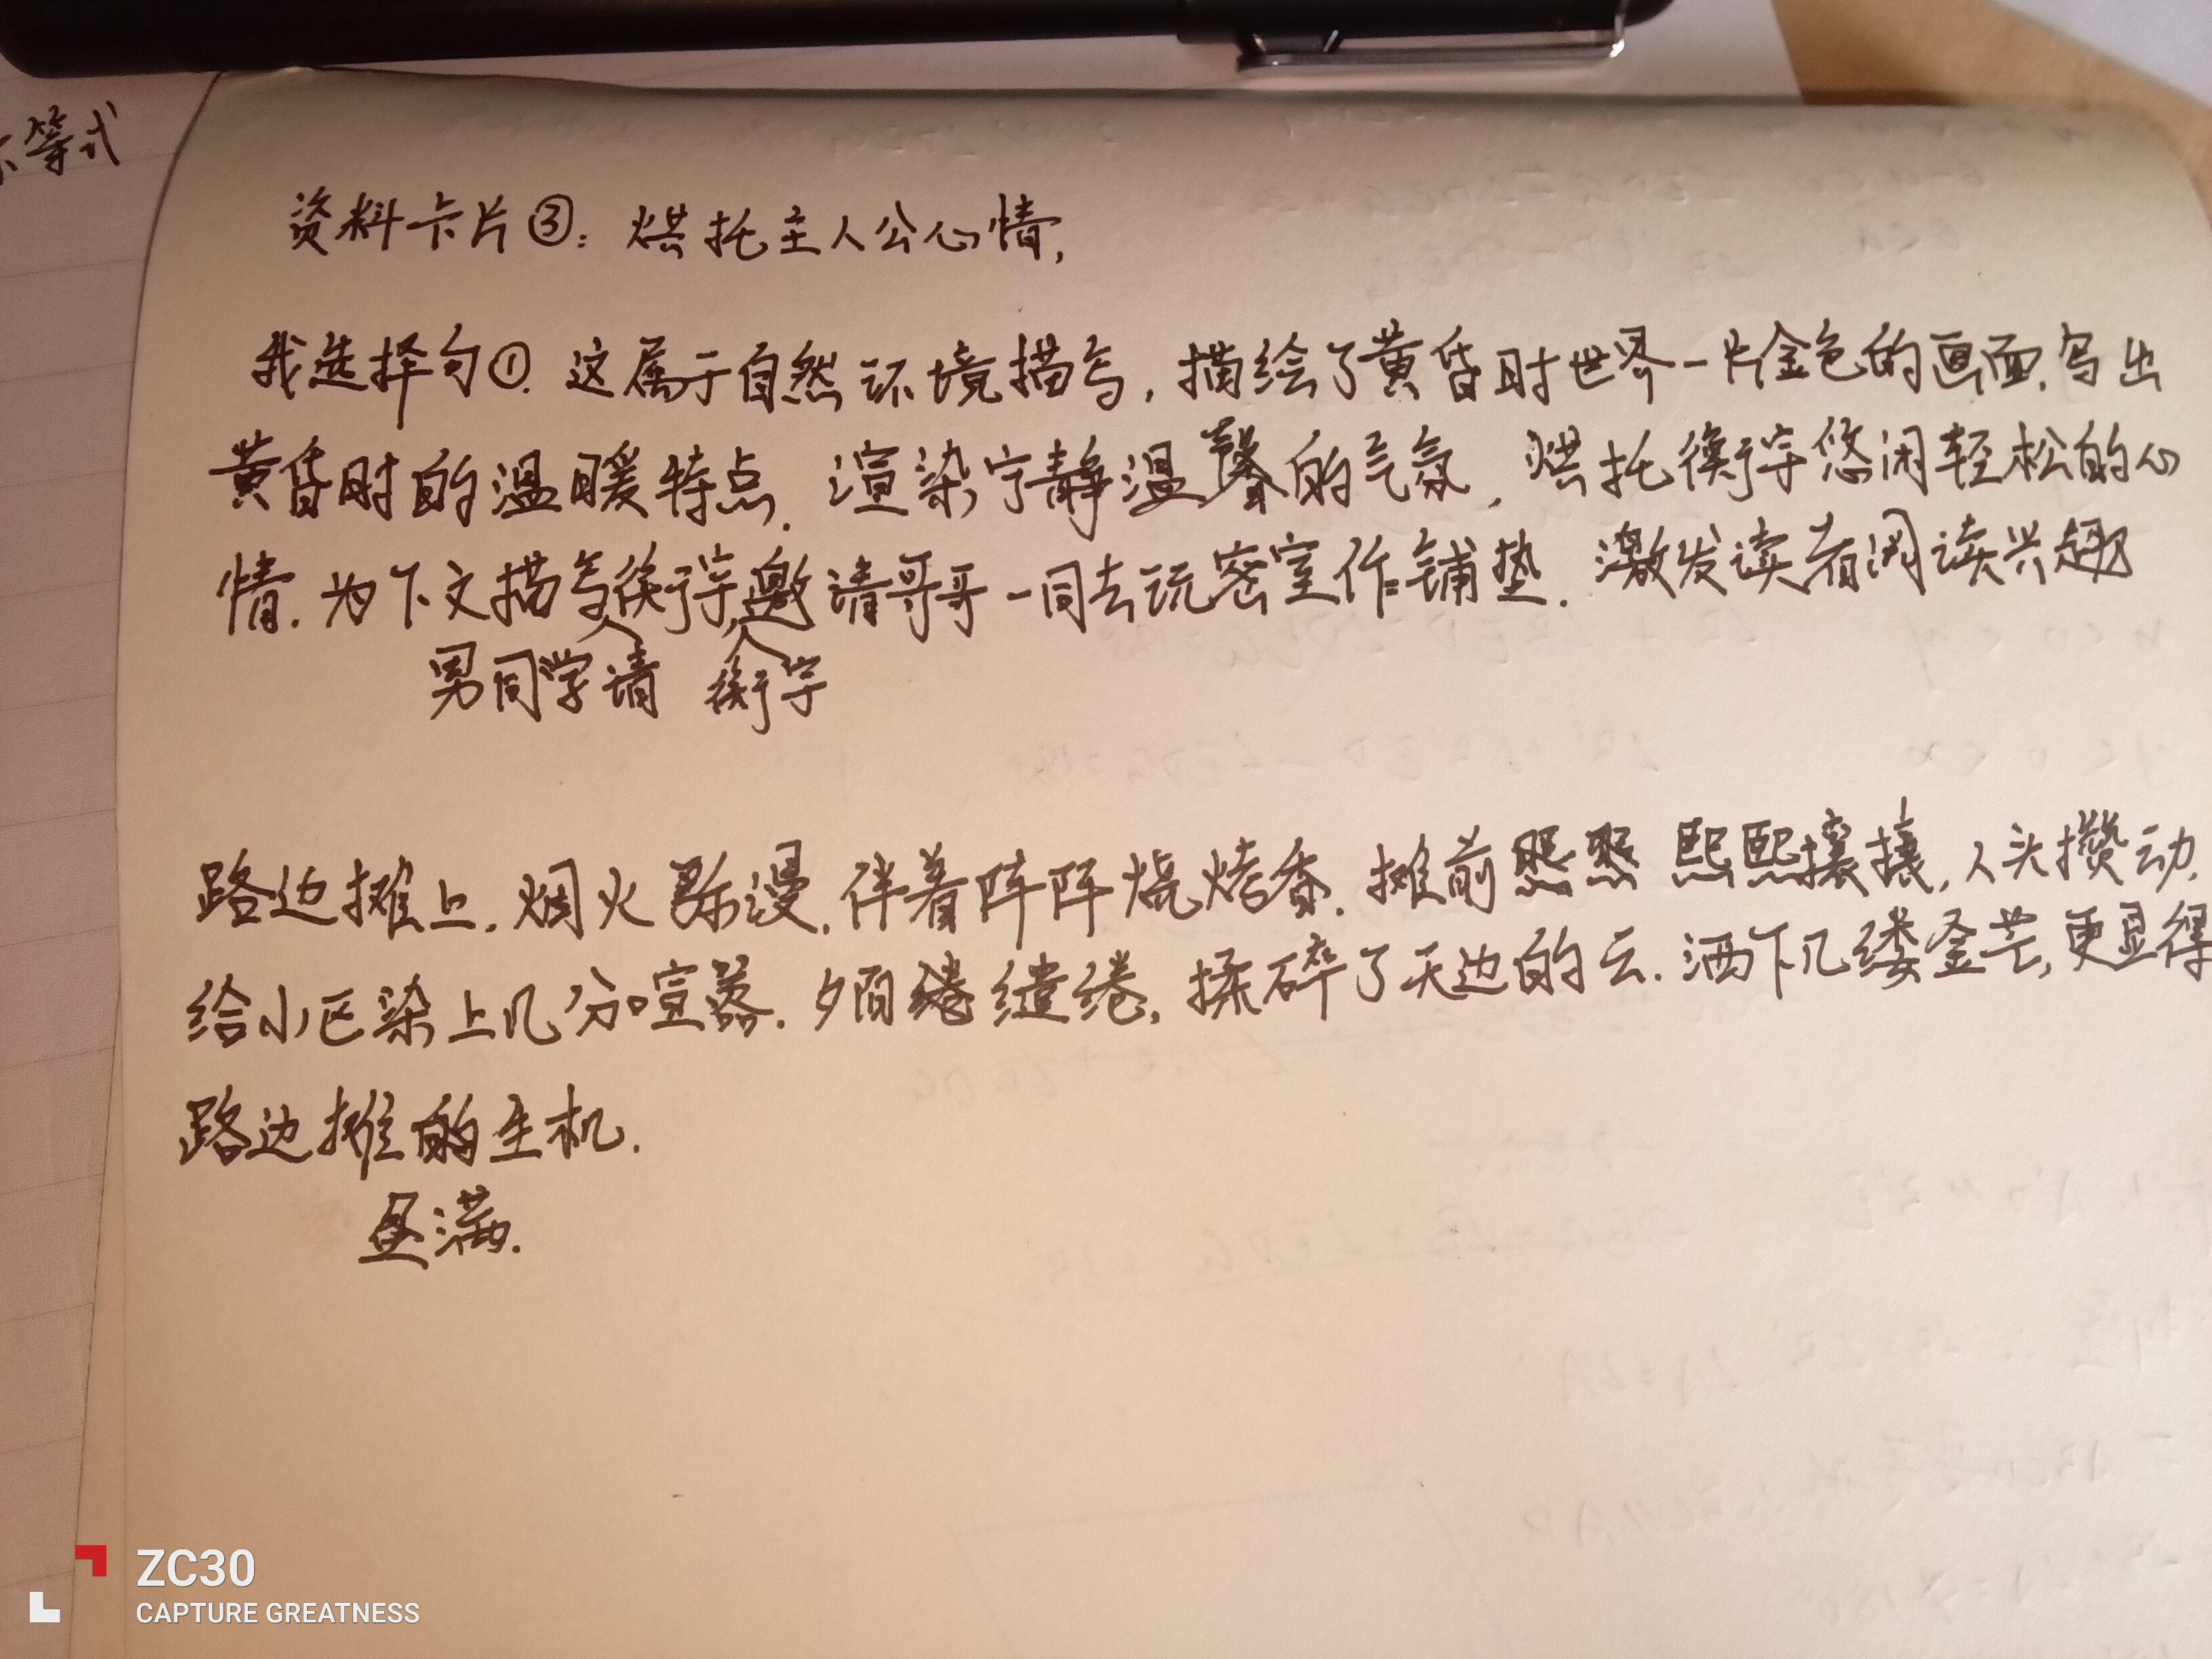 不等式
资料卡片③：烘托主人公心情，
我选择句①．这属于自然环境描写，描绘了黄昏时世界一片金色的画面．写出
黄昏时的温暖特点．渲染宁静温馨的气氛，烘托衡宇悠闲轻松的心
情．为下文描写衡宇邀请哥哥一同去玩密室作铺垫．激发读者阅读兴趣
男同学请 衡宇
路边摊上．烟火弥漫．伴着阵阵烧烤香．摊前熙熙攘攘，人头攒动．
给小区染上几分喧嚣．夕阳缱绻，揉碎了天边的云．洒下几缕金芒，更显得
路边摊的生机．
盈满．
ZC30
CAPTURE GREATNESS